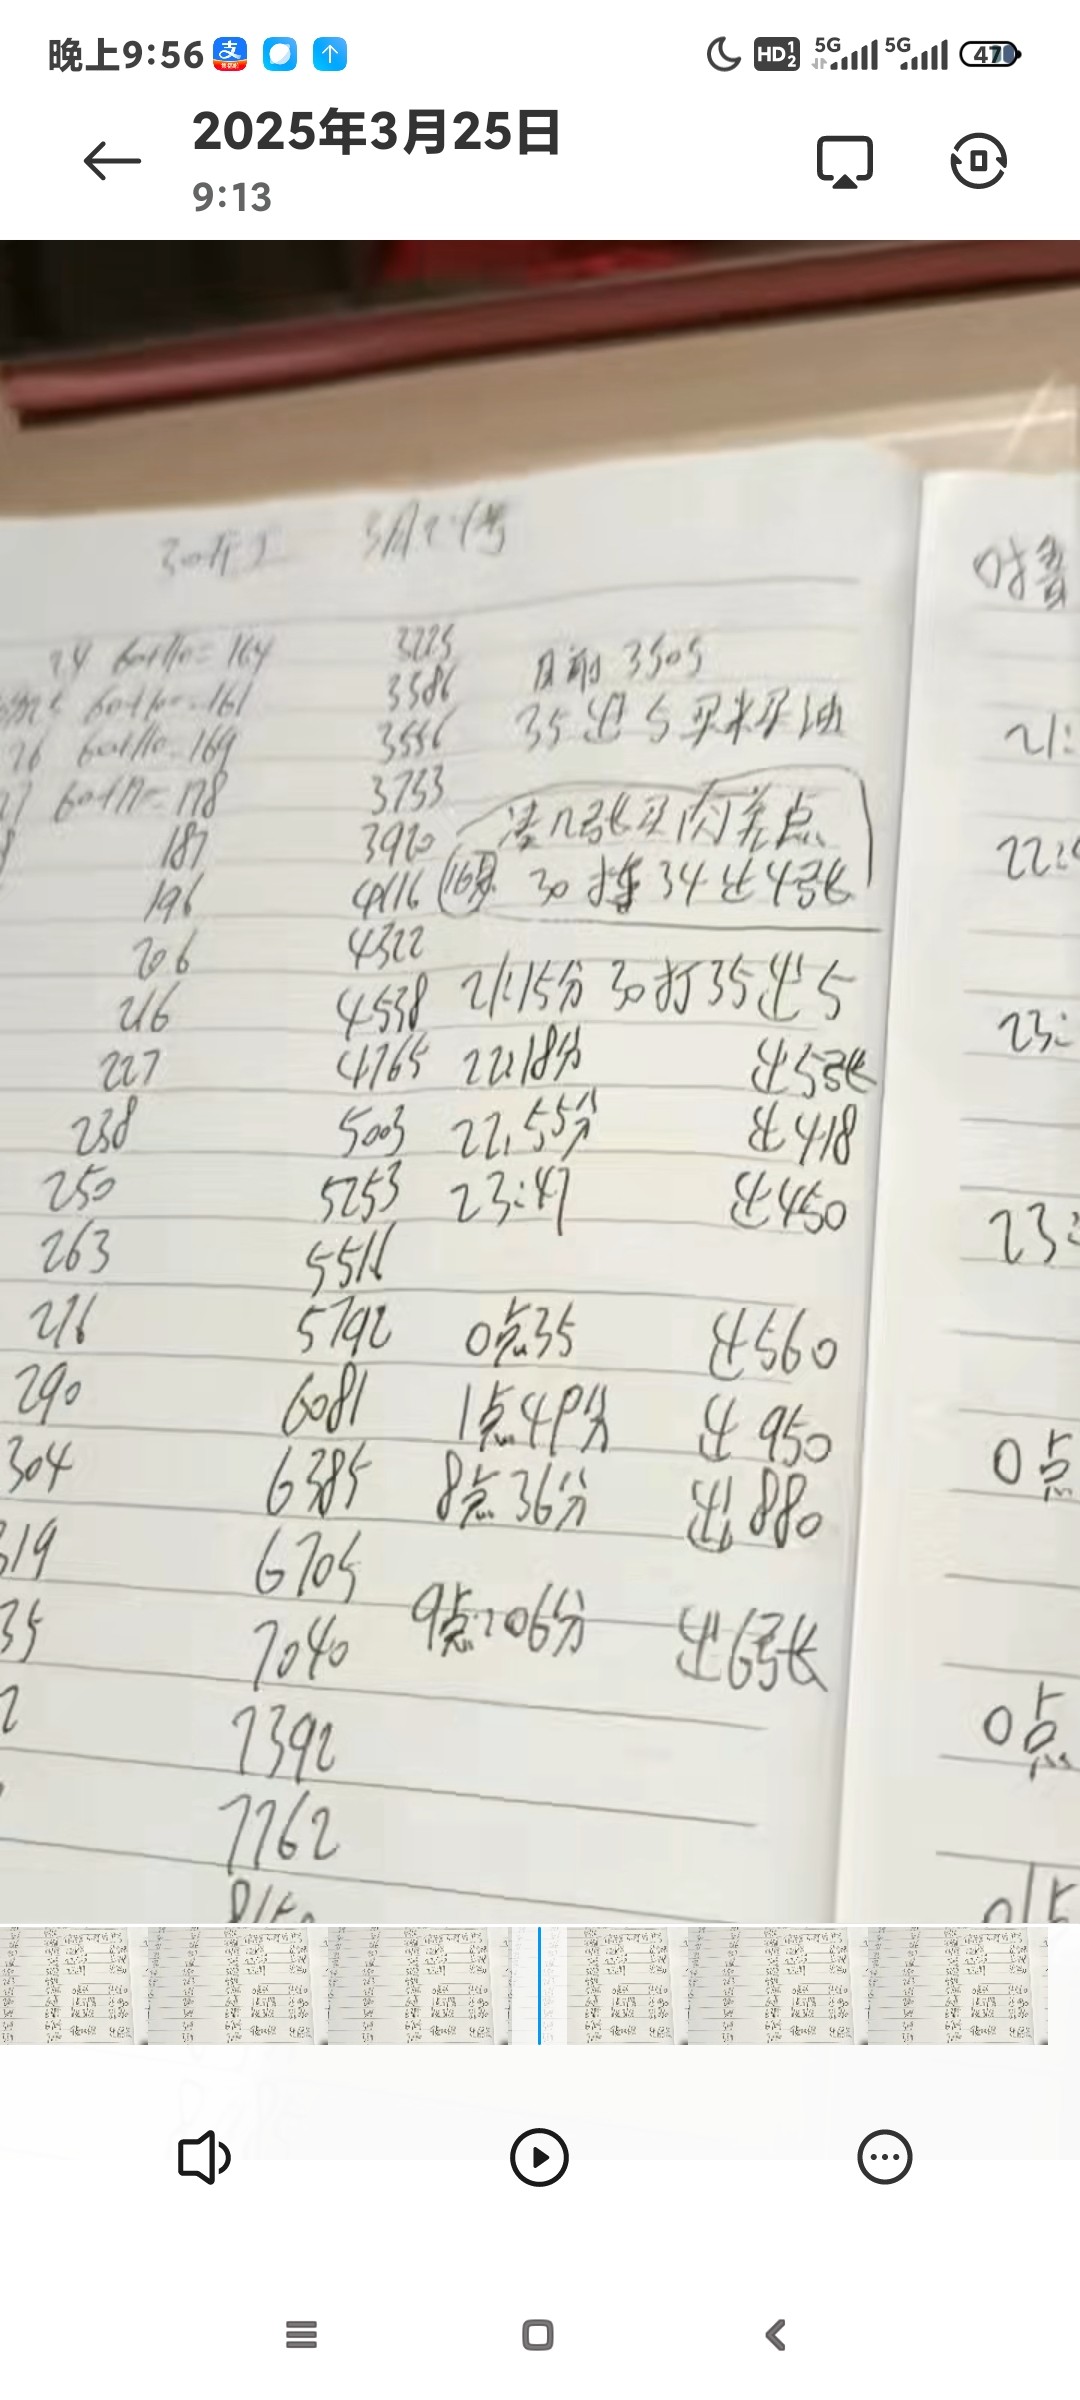 晚上9:56 支 HD 1 2 5G 5G 47
2025年3月25日
9:13
3月24号
时
24 battle= 164 3225 目前 3505
battle= 161 3386 35进5买米买油
26 battle= 169 3556 21:
27 battle= 178 3733
187 3920 凑几张买肉差点
196 4116 30 34出4张 22:
206 4322
216 4538 21:15分 30打35出5
227 4765 22:18分 出5张 23:
238 5003 22:55分 出418
250 5253 23:47 出450 23:
263 5516
276 5792 0点35 出560
290 6081 1点49分 出950
304 6385 8点36分 出880 0点
319 6705
35 7040 9点06分 出6张
2 7392 0点
7762